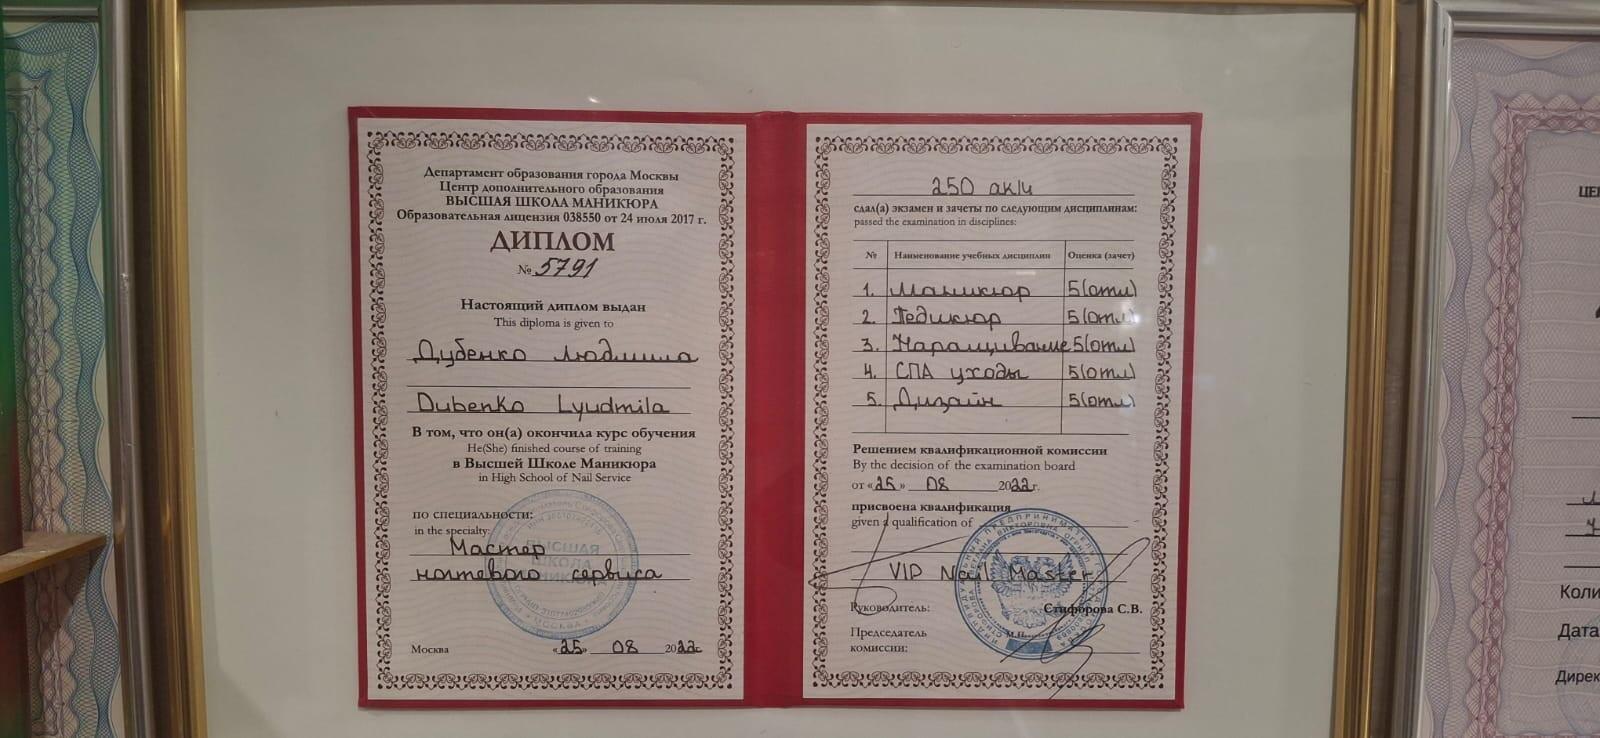 Департамент образования города Москвы
Центр дополнительного образования
ВЫСШАЯ ШКОЛА МАНИКЮРА
Образовательная лицензия 038550 от 24 июля 2017 г.
ДИПЛОМ
№ 5791
Настоящий диплом выдан
This diploma is given to
Дубенко Людмила
Dubenko Lyudmila
В том, что он(а) окончила курс обучения
He(She) finished course of training
в Высшей Школе Маникюра
in High School of Nail Service
по специальности:
in the specialty:
Мастер
ногтевого сервиса
ВЫСШАЯ
ШКОЛА
МАНИКЮРА
МОСКВА
Москва «25» 08 2022г.
250 ак/ч
сдал(а) экзамен и зачеты по следующим дисциплинам:
passed the examination in disciplines:
№ Наименование учебных дисциплин Оценка (зачет)
1. Маникюр 5(отл)
2. Педикюр 5(отл)
3. Наращивание 5(отл)
4. СПА уходы 5(отл)
5. Дизайн 5(отл)
Решением квалификационной комиссии
By the decision of the examination board
от «25» 08 2022г.
присвоена квалификация
given a qualification of
VIP Nail Master
Руководитель: Стифорова С.В.
Председатель
комиссии:
Коли
Дата
Дирек